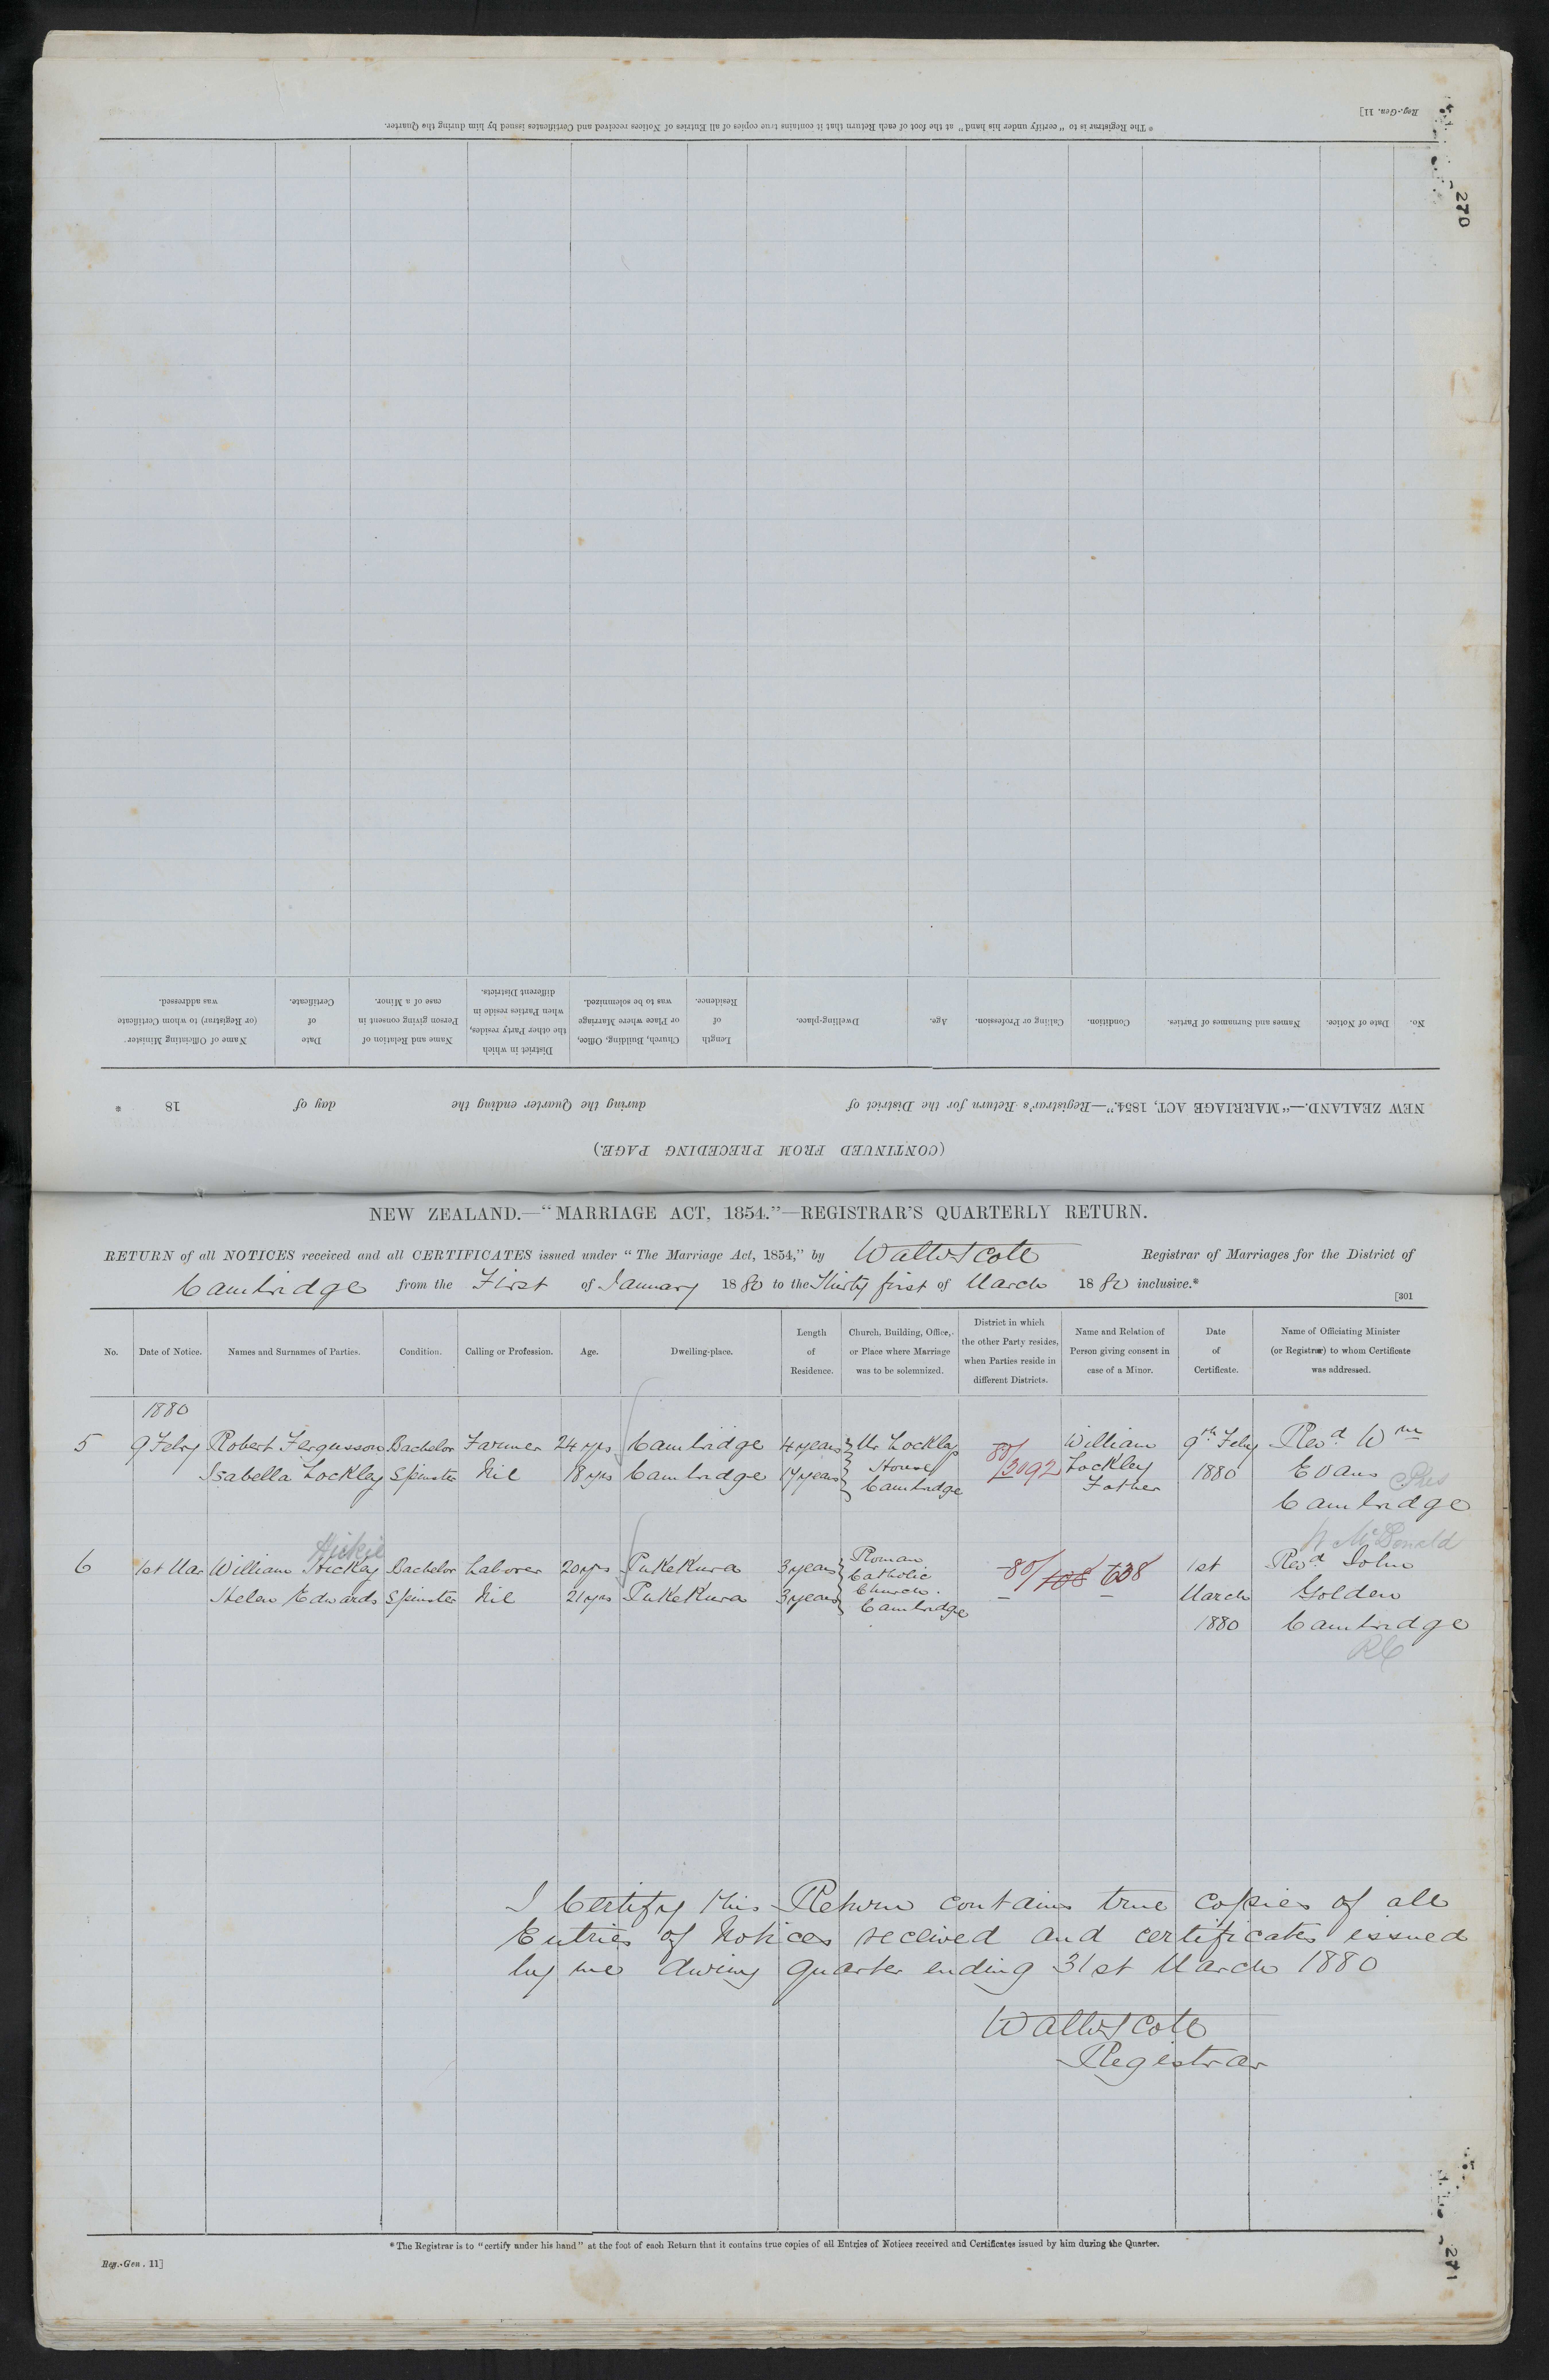 Reg.-Gen. 11]
* The Registrar is to "certify under his hand" at the foot of each Return that it contains true copies of all Entries of Notices received and Certificates issued by him during the Quarter.
270
(CONTINUED FROM PRECEDING PAGE.)
NEW ZEALAND.—"MARRIAGE ACT, 1854."—Registrar's Return for the District of during the Quarter ending the day of 18 *
No. Date of Notice. Names and Surnames of Parties. Condition. Calling or Profession. Age. Dwelling-place. Length of Residence. Church, Building, Office, or Place where Marriage was to be solemnized. District in which the other Party resides, when Parties reside in different Districts. Name and Relation of Person giving consent in case of a Minor. Date of Certificate. Name of Officiating Minister (or Registrar) to whom Certificate was addressed.
NEW ZEALAND.—"MARRIAGE ACT, 1854."—REGISTRAR'S QUARTERLY RETURN.
RETURN of all NOTICES received and all CERTIFICATES issued under "The Marriage Act, 1854," by Walter Cote Registrar of Marriages for the District of
Cambridge from the First of January 1880 to the Thirty first of March 1880 inclusive.*
[301
No. Date of Notice. Names and Surnames of Parties. Condition. Calling or Profession. Age. Dwelling-place. Length of Residence. Church, Building, Office, or Place where Marriage was to be solemnized. District in which the other Party resides, when Parties reside in different Districts. Name and Relation of Person giving consent in case of a Minor. Date of Certificate. Name of Officiating Minister (or Registrar) to whom Certificate was addressed.
1880
5 9 Feby Robert Fergusson Bachelor Farmer 24 yrs Cambridge 4 years Mr Lockley William 9th Feby Revd Wm
Isabella Lockley Spinster Nil 18 yrs Cambridge 17 years House 80/3092 Lockley 1880 Evans Pres
Cambridge Father Cambridge
Hickie W McDonald
6 1st Mar William Hickey Bachelor Laborer 20 yrs Pukekura 3 years Roman Catholic 80/108 638 1st Revd John
Helen Edwards Spinster Nil 21 yrs Pukekura 3 years Church. Cambridge March Golden
1880 Cambridge
RC
I Certify this Return contains true copies of all
Entries of Notices received and certificates issued
by me during quarter ending 31st March 1880
Walter Cote
Registrar
* The Registrar is to "certify under his hand" at the foot of each Return that it contains true copies of all Entries of Notices received and Certificates issued by him during the Quarter.
Reg.-Gen. 11]
271